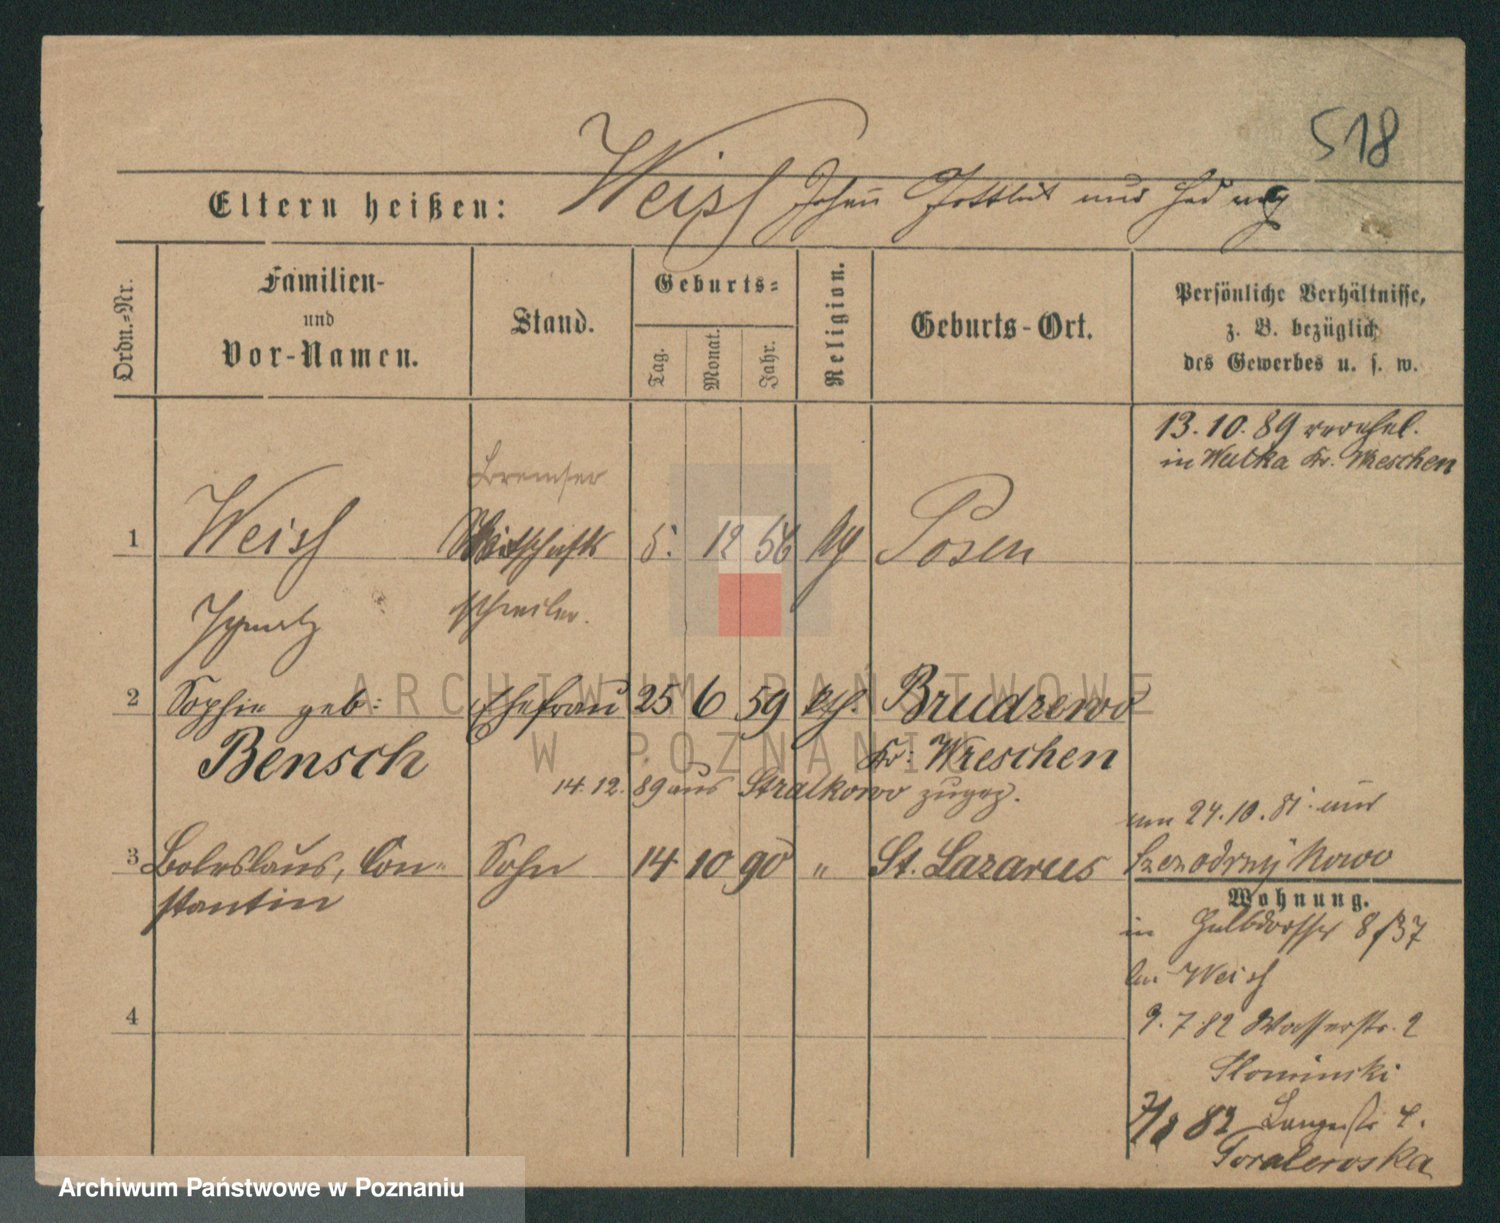 518
Eltern heißen: Weiss Johann Gottlieb und Hedwig
Ordn.-Nr.
Familien-
und
Vor-Namen.
Stand.
Geburts-
Tag.
Monat.
Jahr.
Religion.
Geburts-Ort.
Persönliche Verhältnisse,
z. B. bezüglich
des Gewerbes u. s. w.
13.10.89 verehel.
in Wulka Kr. Wreschen
Bremser
1 Weiss Wirthschafts 5. 12 56 Posen
Ignatz schreiber.
2 Sophie geb: Ehefrau 25 6 59 kth. Brudzewo
Bensch Kr. Wreschen
14.12.89 aus Stralkowo zugez.
am 24.10.81 aus
3 Boleslaus, Con- Sohn 14 10 90 " St. Lazarus
stantin
Wohnung.
in Halbdorfstr 8/37
bei Weiss
4
9.7.82 Wasserstr. 2
Slominski
82 Langestr 4.
ARCHIWUM PAŃSTWOWE
W POZNANIU
Archiwum Państwowe w Poznaniu